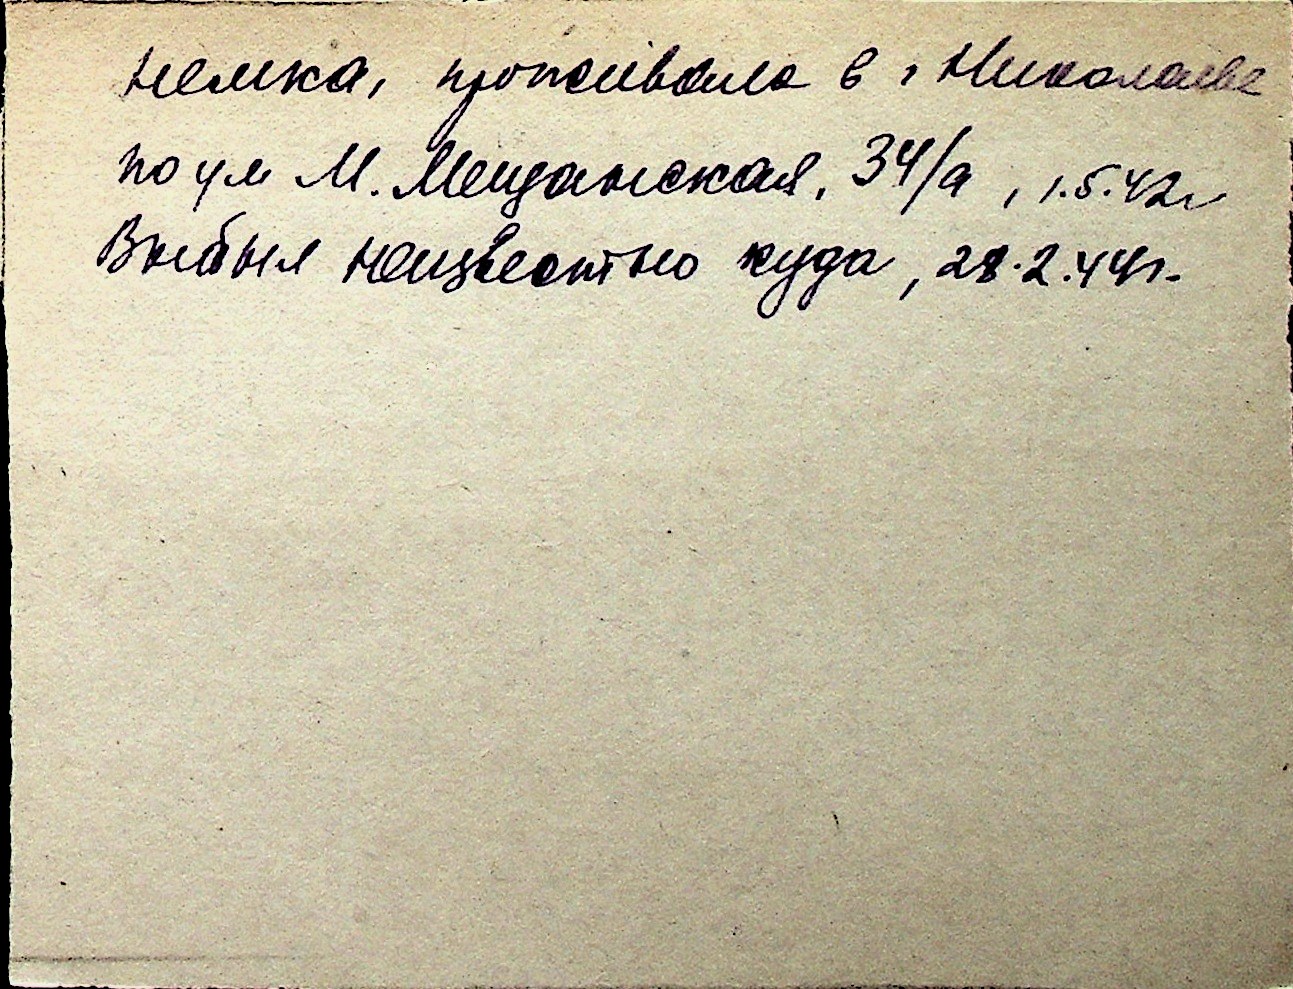 немка, проживала в г Николаеве
по ул М. Мещанская, 34/а, 1.5.42г
Выбыл неизвестно куда, 28.2.44г.